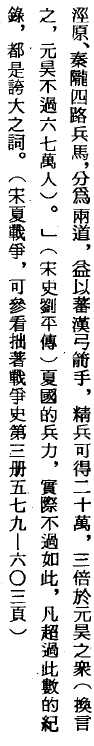 涇原、秦隴四路兵馬，分爲兩道，益以蕃漢弓箭手，精兵可得二十萬，三倍於元昊之衆（換言
之，元昊不過六七萬人）。」（宋史劉平傳）夏國的兵力，實際不過如此，凡超過此數的紀
錄，都是誇大之詞。（宋夏戰爭，可參看拙著戰爭史第三册五七九—六〇三頁）